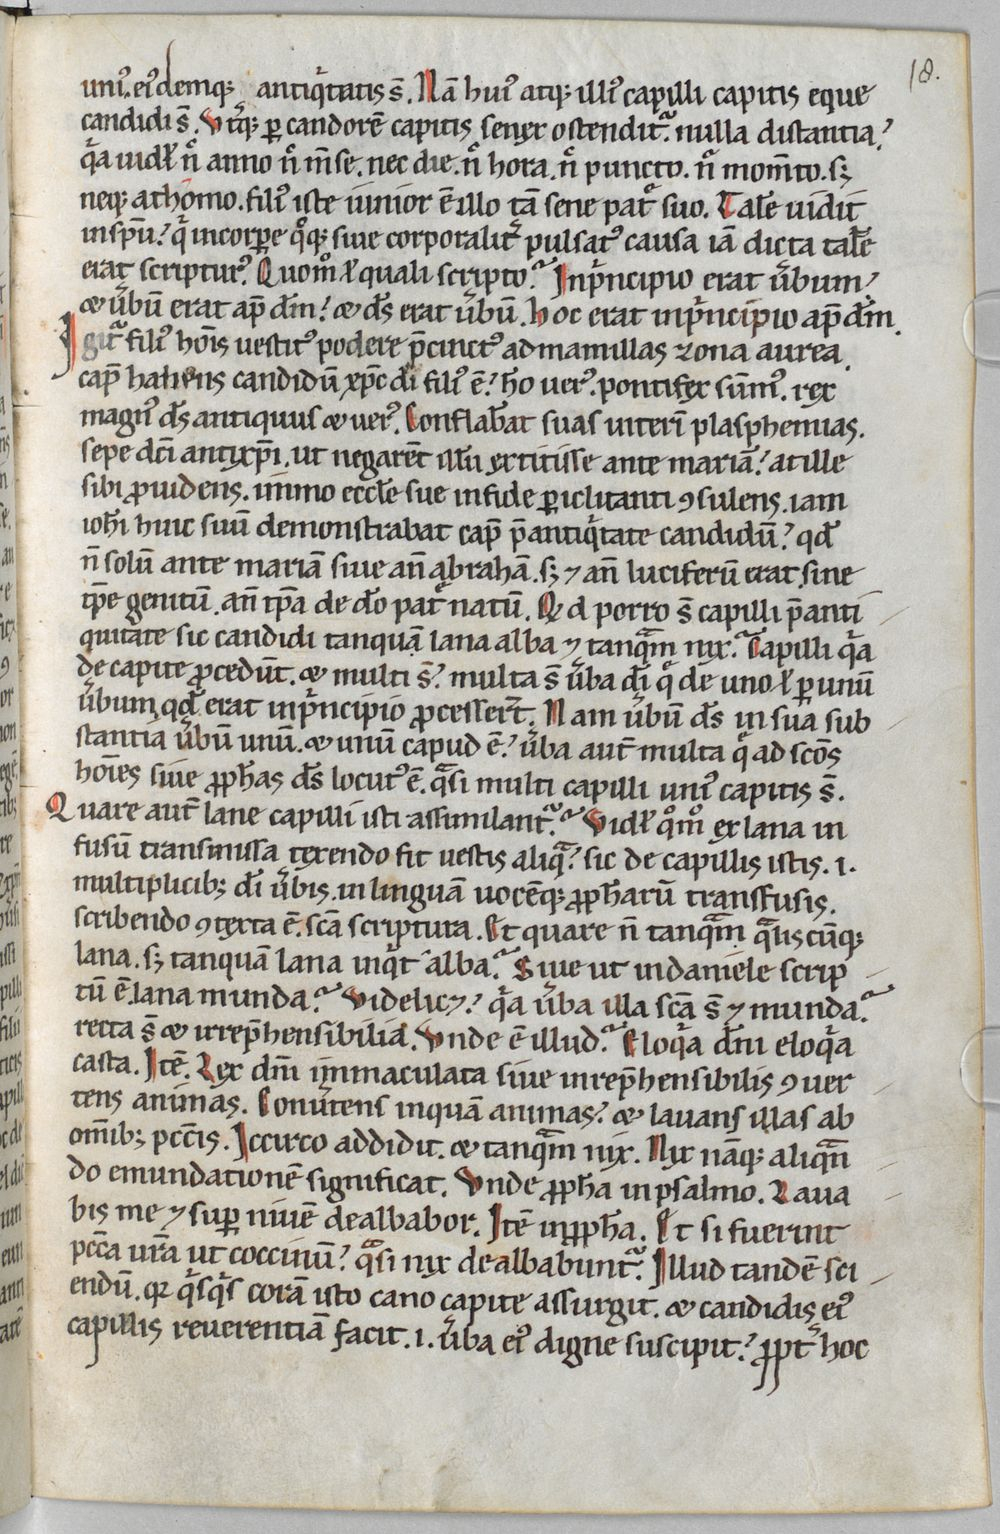 18.
uniꝰ eiꝰdemq; antiqͥtatis s̄. Nā huiꝰ atq; illiꝰ capilli capitis eque
candidi s̄. Vtꝗ; ꝑ candorē capitis senex ostendit᷑. nulla distantia?
qͥa uidꝉ n̄ anno n̄ m̄se. nec die. n̄ hora. n̄ puncto. n̄ mom̄to. sꝫ
neq; athomo. filiꝰ iste iunior ē illo tā sene patͤ suo. Talē uidit
in sp̄u? qͥ incorꝑe qͦq; siue corporalit᷑ pulsatꝰ causa iā dicta talē
erat scripturꝰ. Quom̊ ꝉ quali scripto? Inpͥncipio erat ūbum?
⁊ ūbū erat ap̄ dm̄? ⁊ ds̄ erat ūbū. hoc erat inpͥncipio ap̄ dm̄.
Igit᷑ filiꝰ hōis uestitꝰ podere p̄cinctꝰ ad mamillas zona aurea.
cap̄ habens candidū xp̄c di̅ filiꝰ ē? ho̅ uerꝰ. pontifex sūmꝰ. rex
magnꝰ ds̄ antiquus ⁊ uerꝰ. Conflabat suas uiteri plasphemias.
sepe dc̄i antixp̄i. ut negarēt illū extitisse ante mariā? at ille
sibi ꝓuidens. immo eccl̄e sue in fide ꝑiclitanti ꝯsulens. iam
ioh̄i huic suū demonstrabat cap̄ p̄ antiqͥtate candidū? qd̄
n̄ solū ante mariā siue an̄ abrahā. sꝫ ⁊ an̄ luciferū erat. sine
tp̄e genitū. an̄ tp̄a de do̅ patͤ natū. Qd porro s̄ capilli p̄ anti
quitate sic candidi tanquā lana alba ⁊ tanqᷓm nix? Capilli qͥa
de capite ꝓcedūt. ⁊ multi s̄? multa s̄ ūba di̅ q̄ de uno ꝉ ꝑ unū
ūbum. qd̄ erat inpͥncipio ꝓcesser̄t. Nam ūbū ds̄ in sua sub
stantia ūbū unū. ⁊ unū capud ē? ūba aut̄ multa q̄ ad sc̄os
hōies siue ꝓph̄as ds̄ locutꝰ ē. qᷓsi multi capilli uniꝰ capitis s̄.
Quare aut̄ lane capilli isti assimilant᷑? Vidꝉ qͦm̊ ex lana in
fusū transmissa texendo fit uestis aliqᷓ? sic de capillis istis. i.
multiplicib; di̅ ūbis. in linguā uocēq; ꝓph̄arū transfusis.
scribendo ꝯtexta ē. sc̄a scriptura. Et quare n̄ tanqᷓm qᷓliscūq;
lana. sꝫ tanquā lana inqͥt alba? Siue ut in daniele scrip
tū ē. lana munda? Videlicꝫ? qͥa ūba illa sc̄a s̄ ⁊ munda?
recta s̄ ⁊ irrep̄hensibilia. Vnde ē illud? Eloqͥa dn̄i eloqͥa
casta. Itē. Lex dn̄i immaculata siue inrep̄hensibilis ꝯuer
tens animas. Conūtens inquā animas? ⁊ lauans illas ab
om̄ib; pcc̄is. Iccirco addidit. ⁊ tanqᷓm nix. Nix nāq; aliqᷓn
do emundationē significat. Vnde ꝓph̄a in psalmo. Laua
bis me ⁊ suꝑ niuē dealbabor. Itē in ꝓph̄a. Et si fuerint
pcc̄a ur̄a ut coccinū? qᷓsi nix dealbabunt᷑. Illud tandē sci
endū. qꝛ qͥsqͥs corā isto cano capite assurgit. ⁊ candidis eiꝰ
capillis reuerentiā facit. i. ūba eiꝰ digne suscipit? ꝓpt᷑ hoc